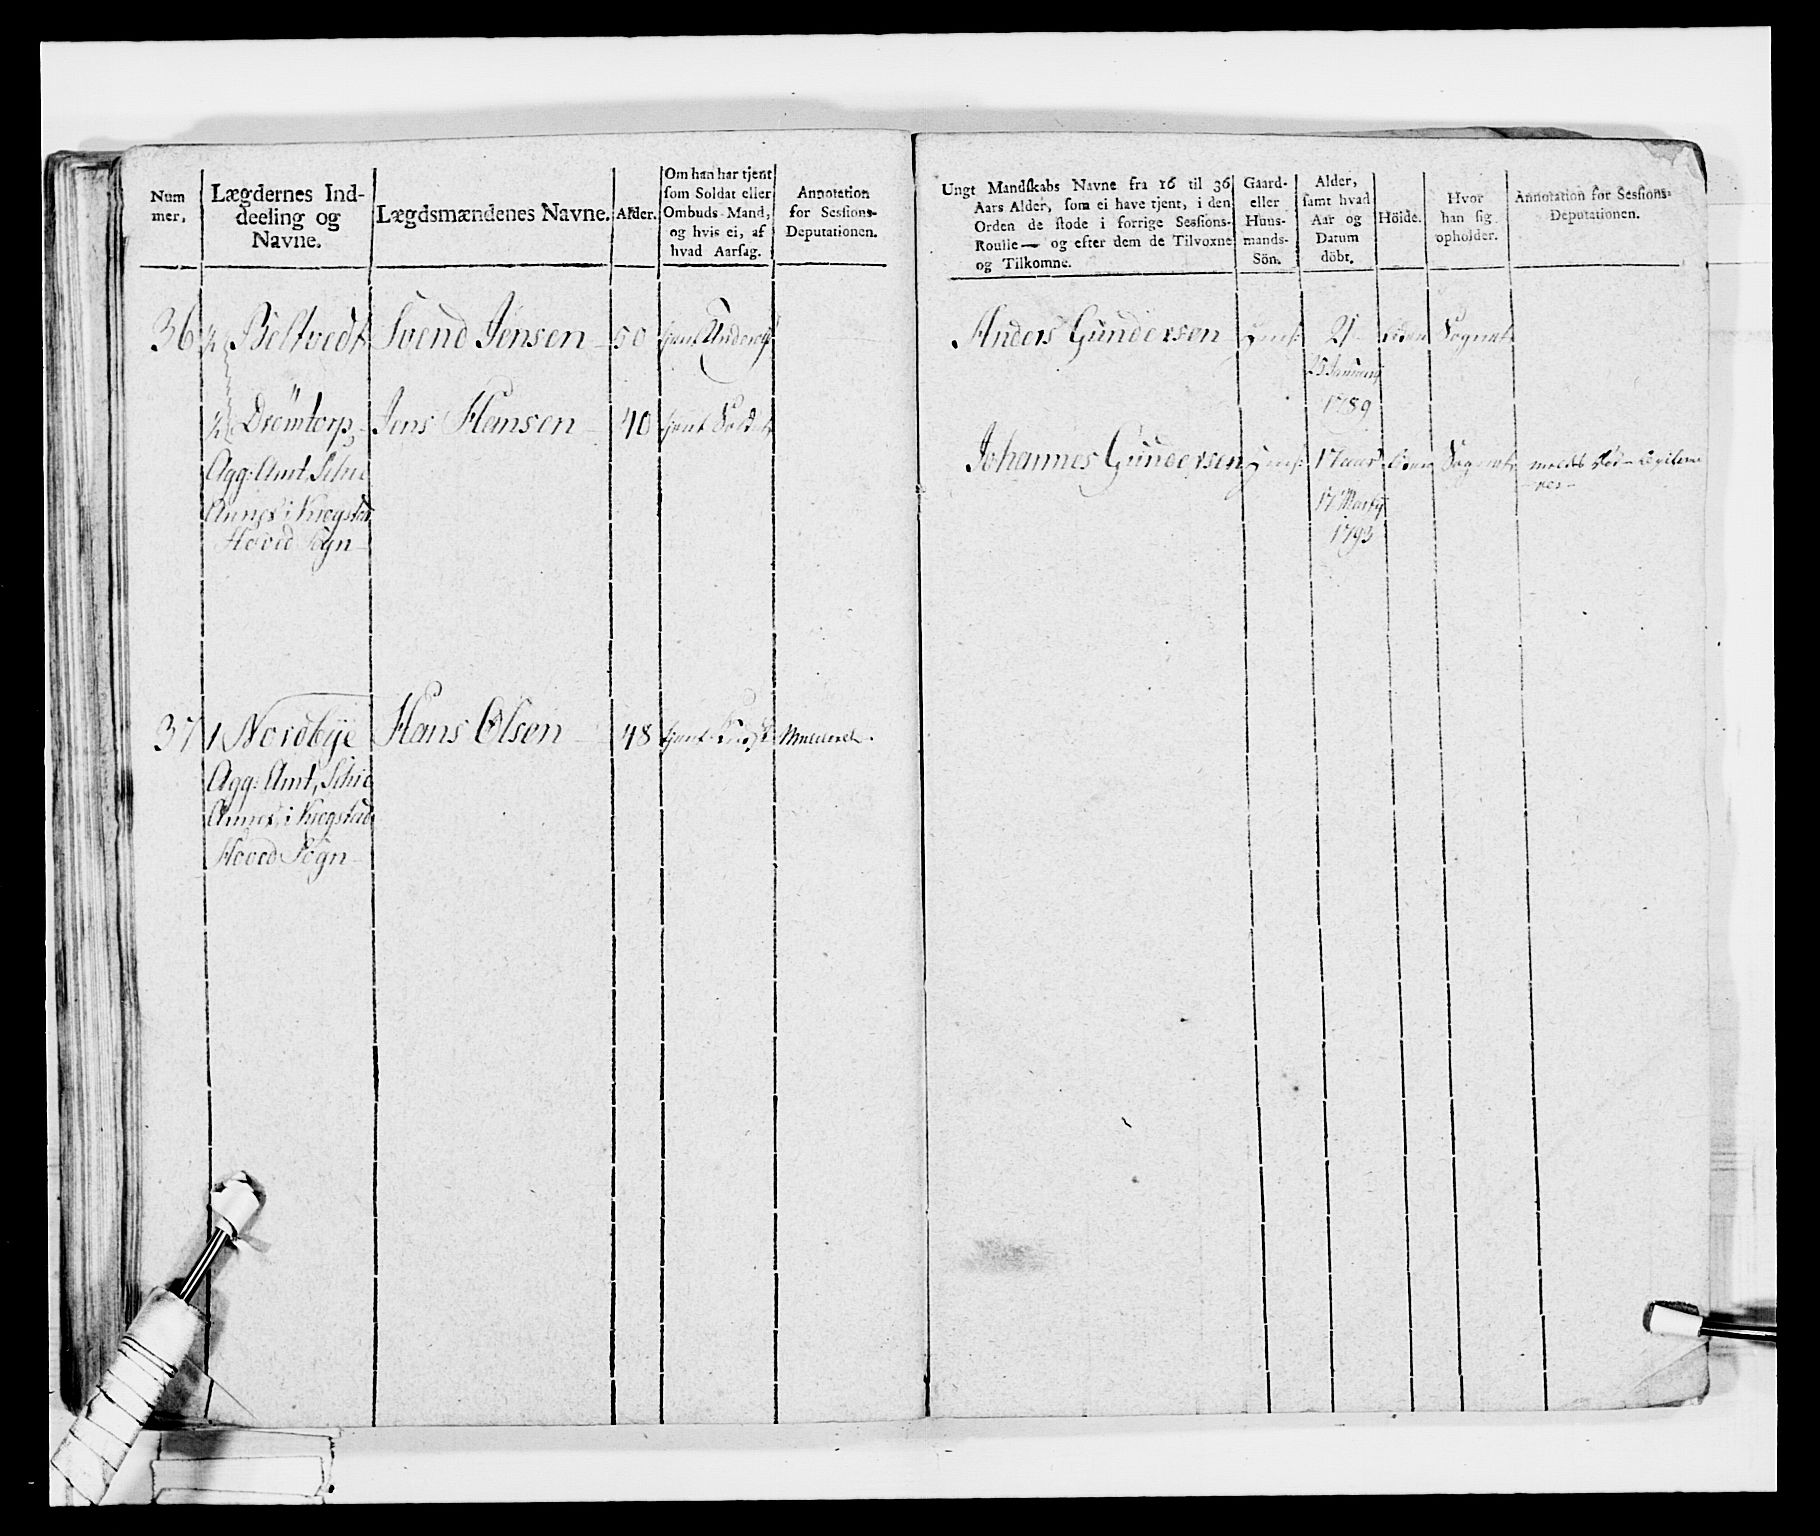 Num
mer,
Lægdernes Ind-
deeling og
Navne.
Lægdsmændenes Navne.
Alder.
Om han har tjent
som Soldat eller
Ombuds-Mand,
og hvis ei, af
hvad Aarsag.
Annotation
for Sessions-
Deputationen.
Ungt Mandskabs Navne fra 16 til 36
Aars Alder, som ei have tjent, i den
Orden de stode i forrige Sessions-
Roulle — og efter dem de Tilvoxne
og Tilkomne.
Gaard-
eller
Huus-
mands-
Sön.
Alder,
samt hvad
Aar og
Datum
döbt.
Höide.
Hvor
han sig
opholder.
Annotation for Sessions-
Deputationen.
36 ½ Beltvedt Svend Jensen 50 tjent
½ Drömtorp Jens Hansen 40 tjent Soldat
Agg: Amt, Schie
Annex i Krogstad
Hoved Sogn
37 1 Nordbÿe Hans Olsen 48 tjent
Agg: Amt, Schie
Annex i Krogstad
Hoved Sogn
Anders Gundersen 21 Sognet
23 Januarÿ
1789
Johannes Gundersen 17 aar Sognet
17 Martÿ
1793